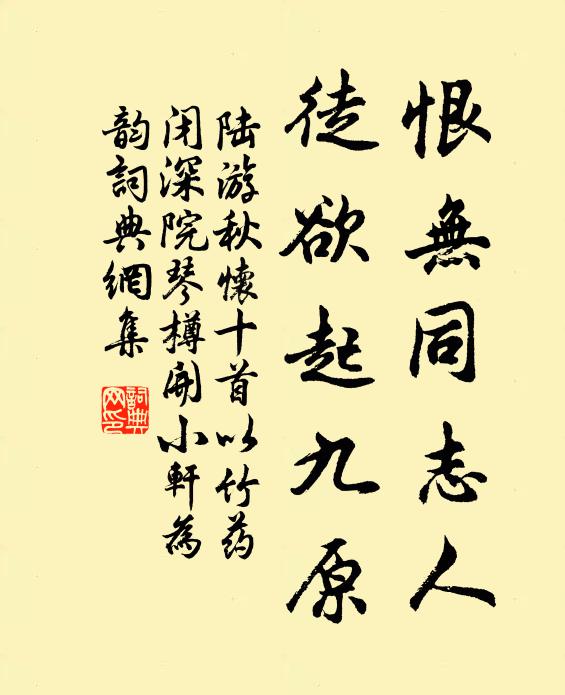 恨無同志人
徒欲起九原
陆游秋懷十首以竹药
闭深院琴樽開小軒為
韵詞典網集
詞典
网印